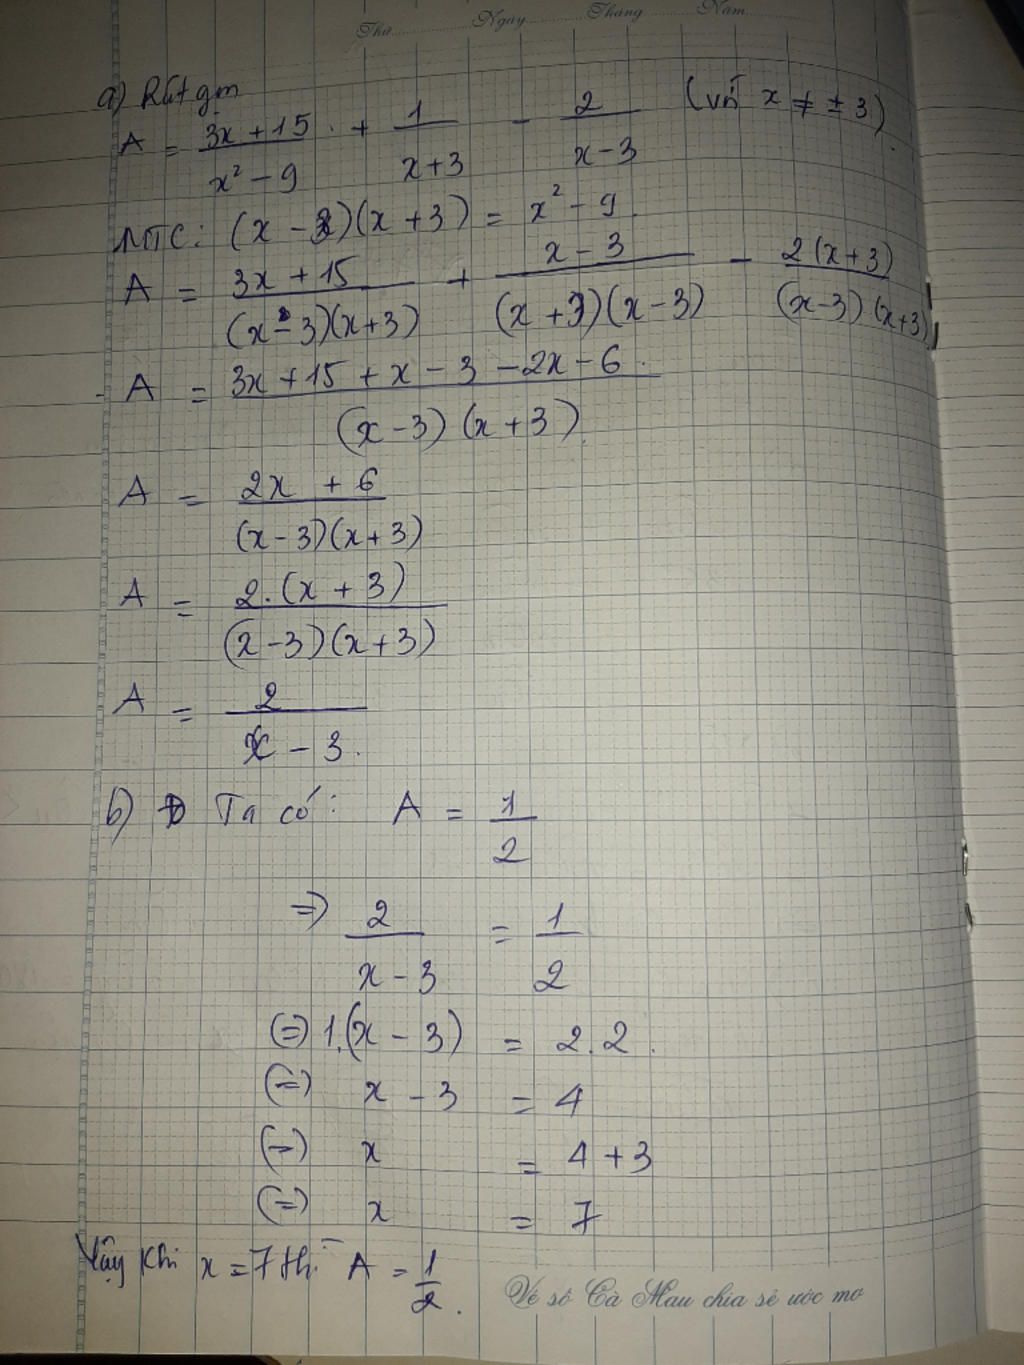 Thứ Ngày Tháng Năm
a) Rút gọn
A = \frac{3x+15}{x^2-9} + \frac{1}{x+3} - \frac{2}{x-3} (với x ≠ ± 3)
MTC: (x - 3)(x + 3) = x^2 - 9.
A = \frac{3x+15}{(x-3)(x+3)} + \frac{x-3}{(x+3)(x-3)} - \frac{2(x+3)}{(x-3)(x+3)}
A = \frac{3x+15+x-3-2x-6}{(x-3)(x+3)}
A = \frac{2x+6}{(x-3)(x+3)}
A = \frac{2.(x+3)}{(x-3)(x+3)}
A = \frac{2}{x-3}.
b) Ta có: A = \frac{1}{2}
=> \frac{2}{x-3} = \frac{1}{2}
(=) 1.(x - 3) = 2.2.
(=) x - 3 = 4
(=) x = 4 + 3
(=) x = 7
Vậy khi x = 7 thì A = \frac{1}{2}.
Vé số Cà Mau chia sẻ ước mơ